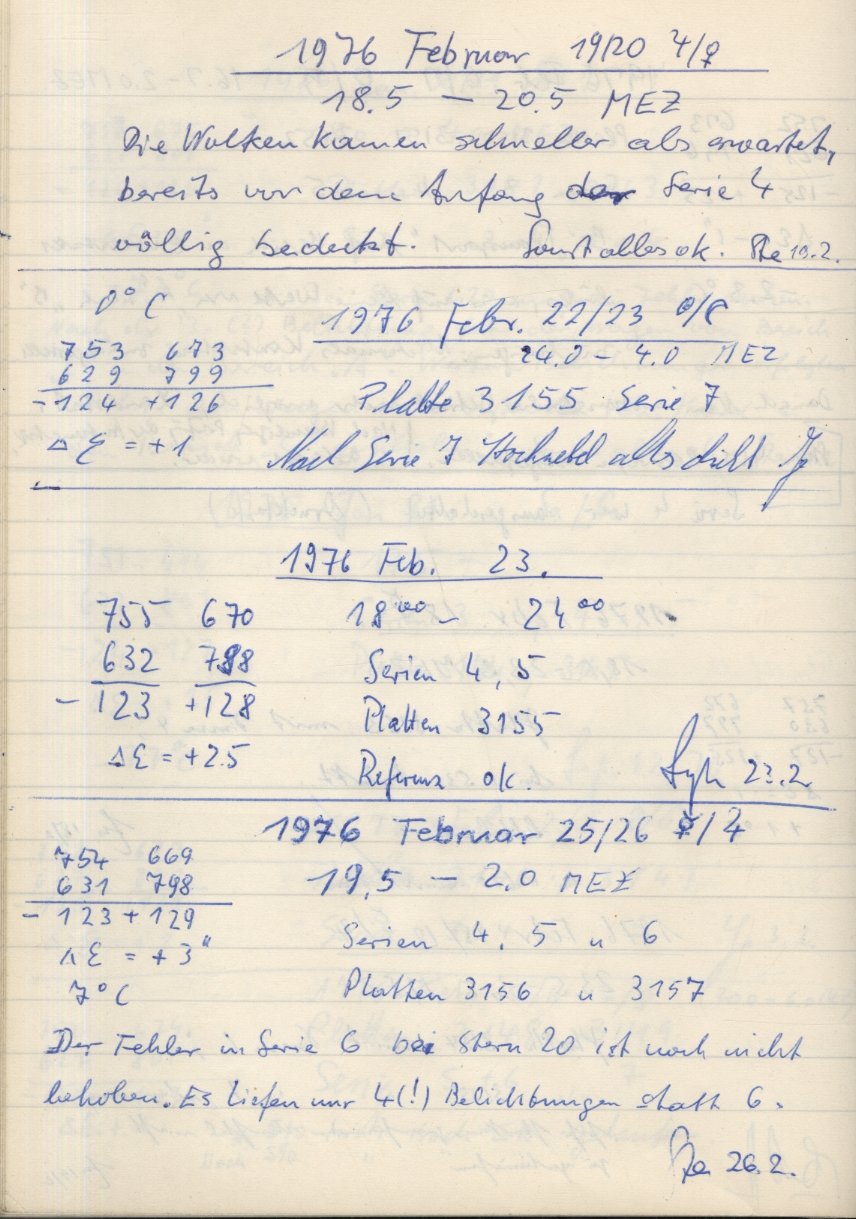 1976 Februar 19/20 ♃/♀
18.5 – 20.5 MEZ
Die Wolken kamen schneller als erwartet,
bereits vor dem Anfang der Serie 4
völlig bedeckt. Sonst alles ok. 19.2.
0° C
1976 Febr. 22/23 ☉/☾
753 673
24.0 – 4.0 MEZ
629 799
-124 +126
Platte 3155 Serie 7
Δε = +1
Nach Serie 7 Hochnebel alles dicht
1976 Feb. 23.
755 670
18⁰⁰ – 24⁰⁰
632 798
Serien 4, 5
-123 +128
Platten 3155
Δε = +2.5
Referenz ok. 23.2.
1976 Februar 25/26 ☿/♃
754 669
631 798
19,5 – 2.0 MEZ
-123 +129
Serien 4, 5 u 6
Δε = +3"
7° C
Platten 3156 u 3157
Der Fehler in Serie 6 bei Stern 20 ist noch nicht
behoben. Es liefen nur 4(!) Belichtungen statt 6.
26.2.